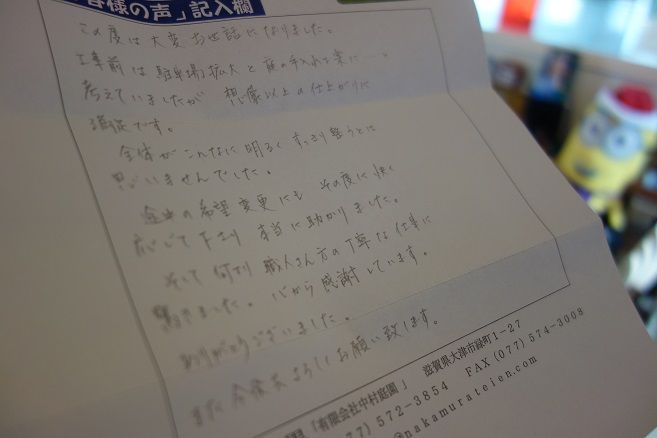 客様の声」記入欄
この度は大変お世話になりました。
工事前は駐車場拡大と庭の手入れを楽に
考えていましたが 想像以上の仕上がりに
満足です。
全体がこんなに明るくすっきり整うとは
思いませんでした。
途中の希望変更にも その度に快く
応じて下さり 本当に助かりました。
そして何より 職人さん方の丁寧な仕事に
驚きました。心から感謝しています。
ありがとうございました。
また今後共よろしくお願い致します。
「有限会社中村庭園」 滋賀県大津市緑町1-27
77) 572-3854 FAX (077) 574-3008
@nakamurateien.com